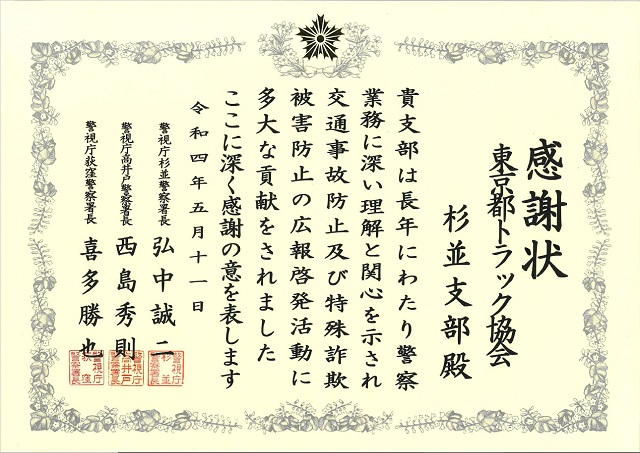 感謝状
東京都トラック協会
杉並支部殿
貴支部は長年にわたり警察
業務に深い理解と関心を示され
交通事故防止及び特殊詐欺
被害防止の広報啓発活動に
多大な貢献をされました
ここに深く感謝の意を表します
令和四年五月十一日
警視庁杉並警察署長 弘中誠二
警視庁高井戸警察署長 西島秀則
警視庁荻窪警察署長 喜多勝也
警視庁杉並警察署長
警視庁高井戸警察署長
警視庁荻窪警察署長